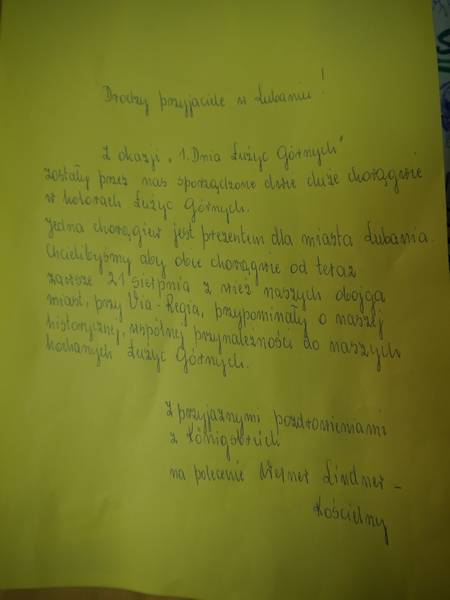 Drodzy przyjaciele w Lubaniu!
Z okazji „1. Dnia Łużyc Górnych"
zostały przez nas sporządzone dwie duże chorągwie
w kolorach Łużyc Górnych.
Jedna chorągiew jest prezentem dla miasta Lubania.
Chcielibyśmy aby obie chorągwie od teraz
zawsze 21 sierpnia z wież naszych obojga
miast, przy Via-Regia, przypominały o naszej
historycznej, wspólnej przynależności do naszych
kochanych Łużyc Górnych.
Z przyjaznymi pozdrowieniami
z Königsbrück
na polecenie Werner Lindner -
Kościelny